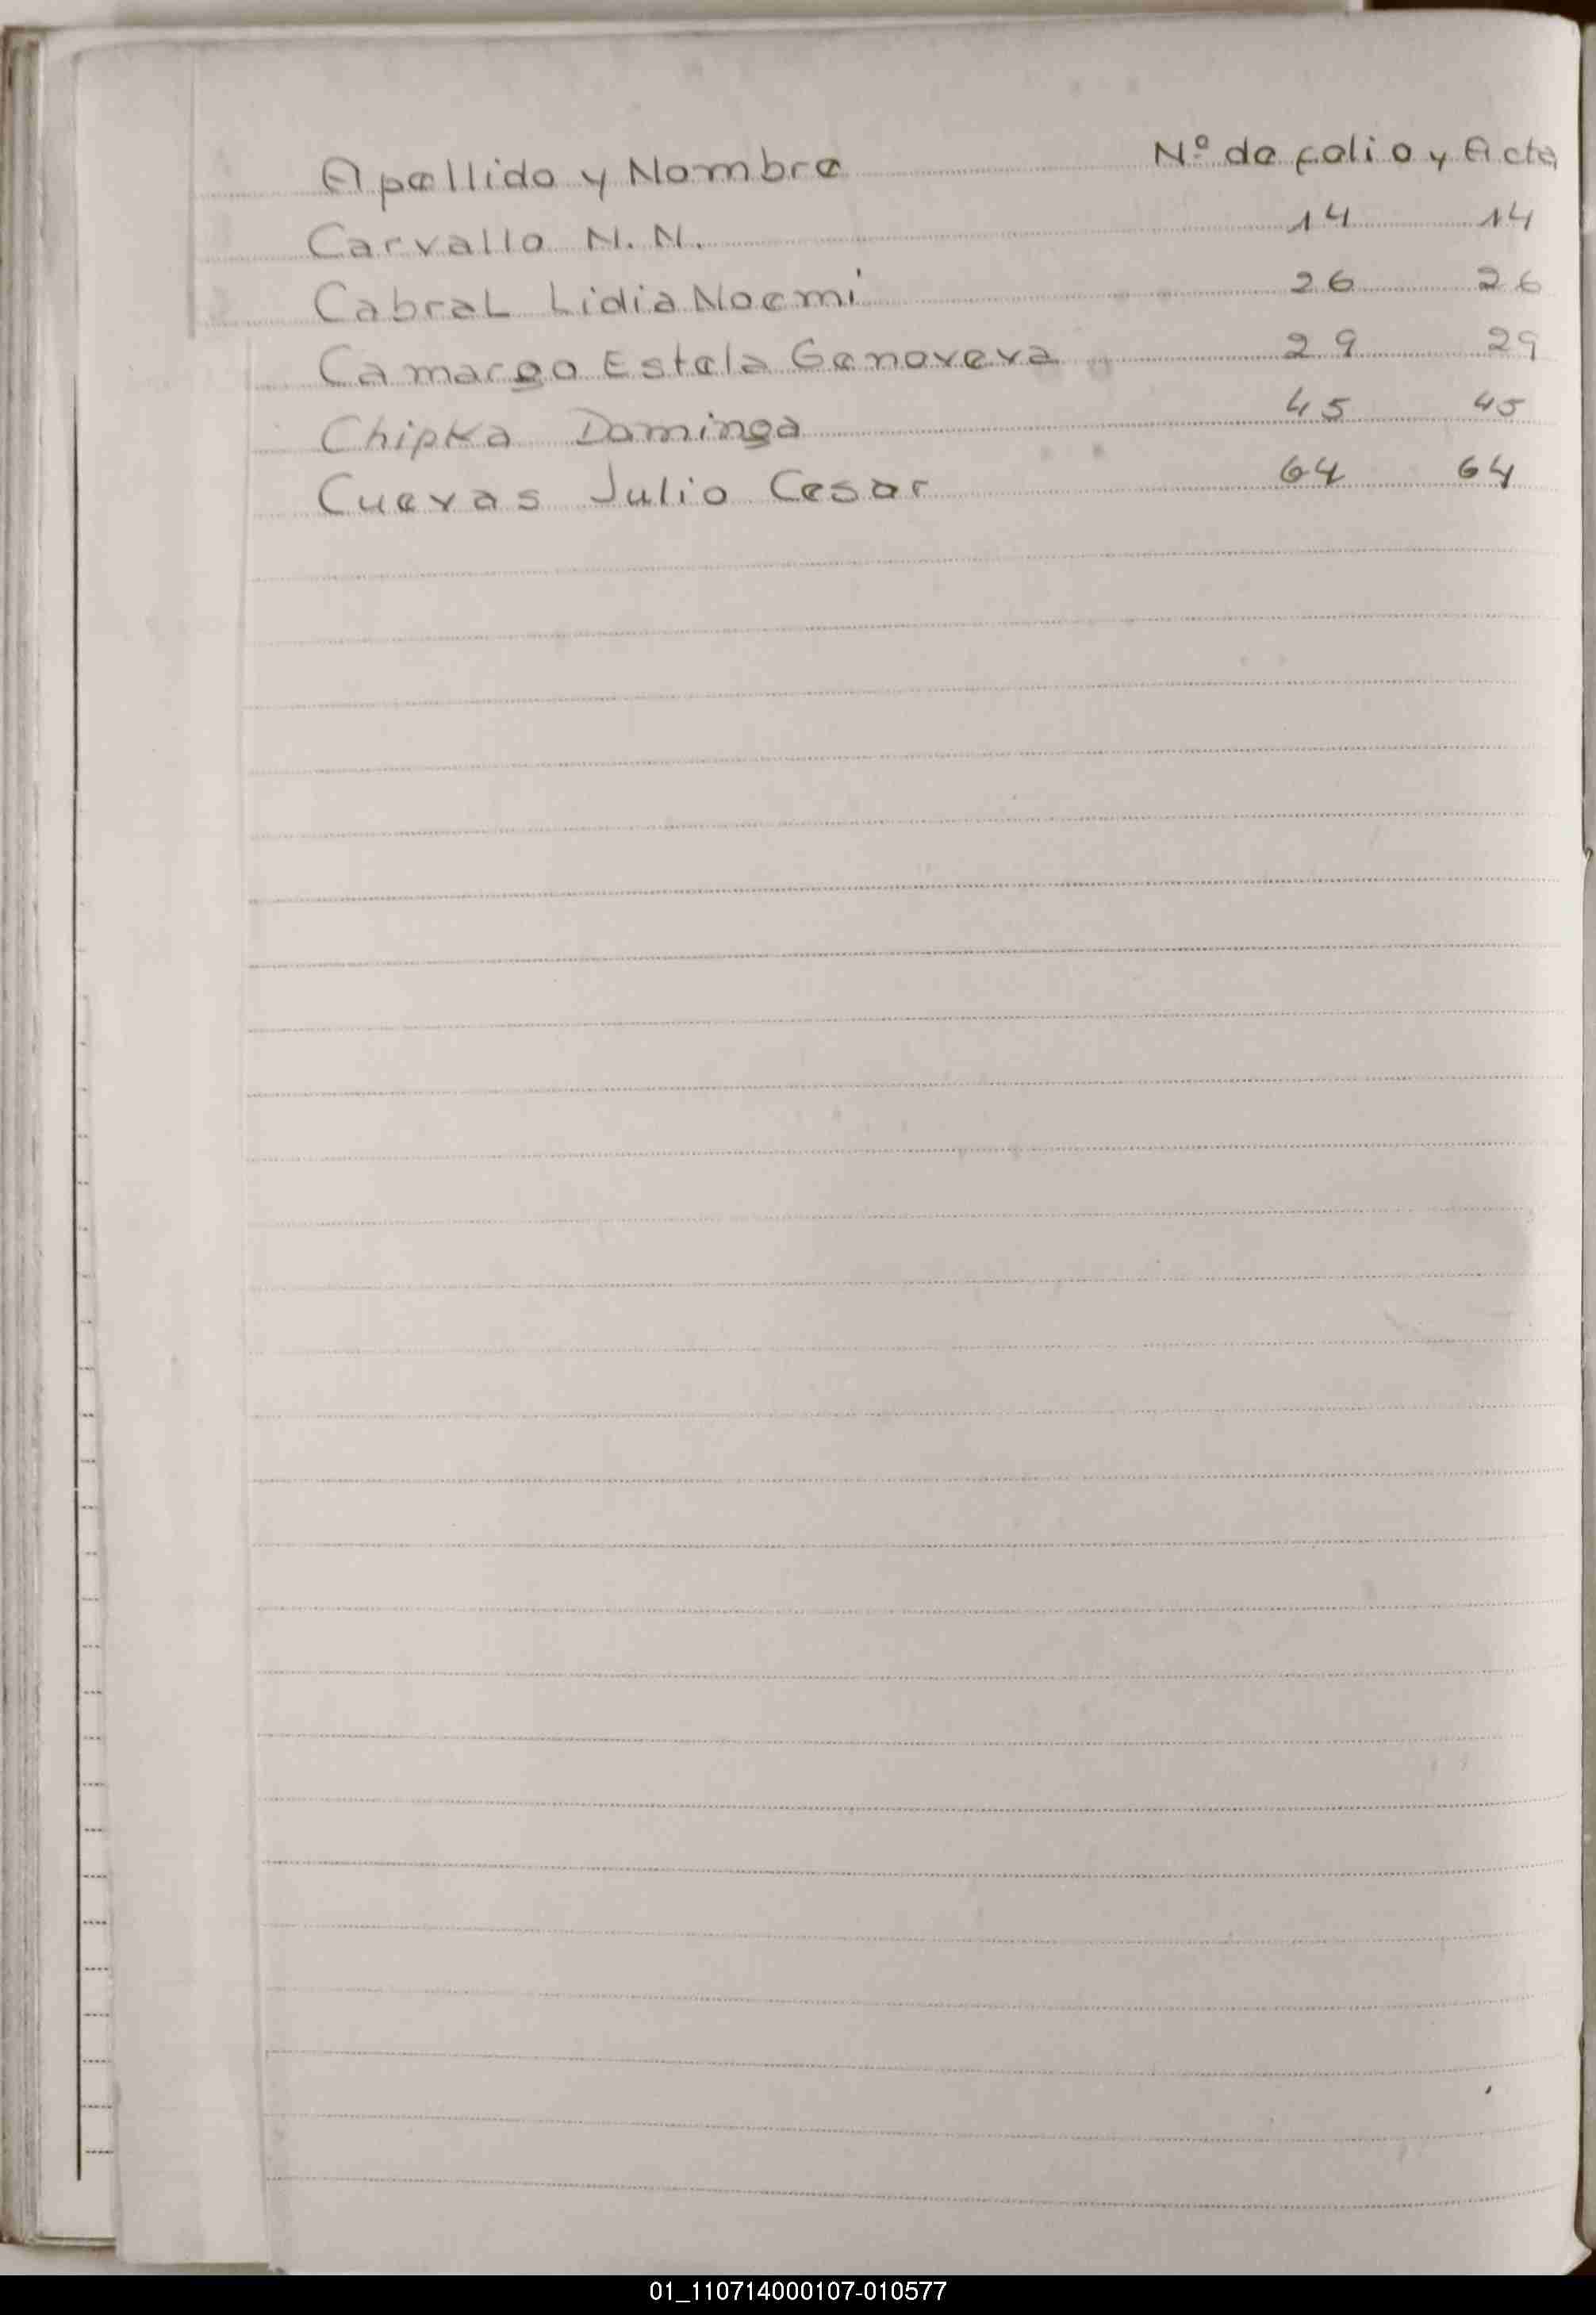 Apellido y Nombre Nº de folio y Acta
Carvallo N. N. 14 14
Cabral Lidia Noemi 26 26
Camargo Estela Genoveva 29 29
Chipka Dominga 45 45
Cuevas Julio Cesar 64 64
01_110714000107-010577